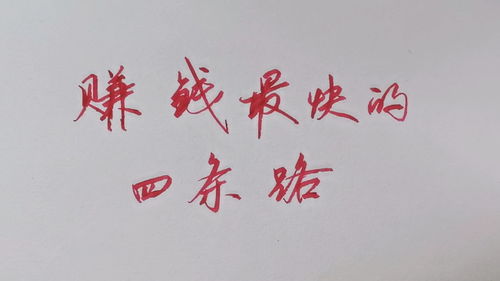 赚钱最快的
四条路